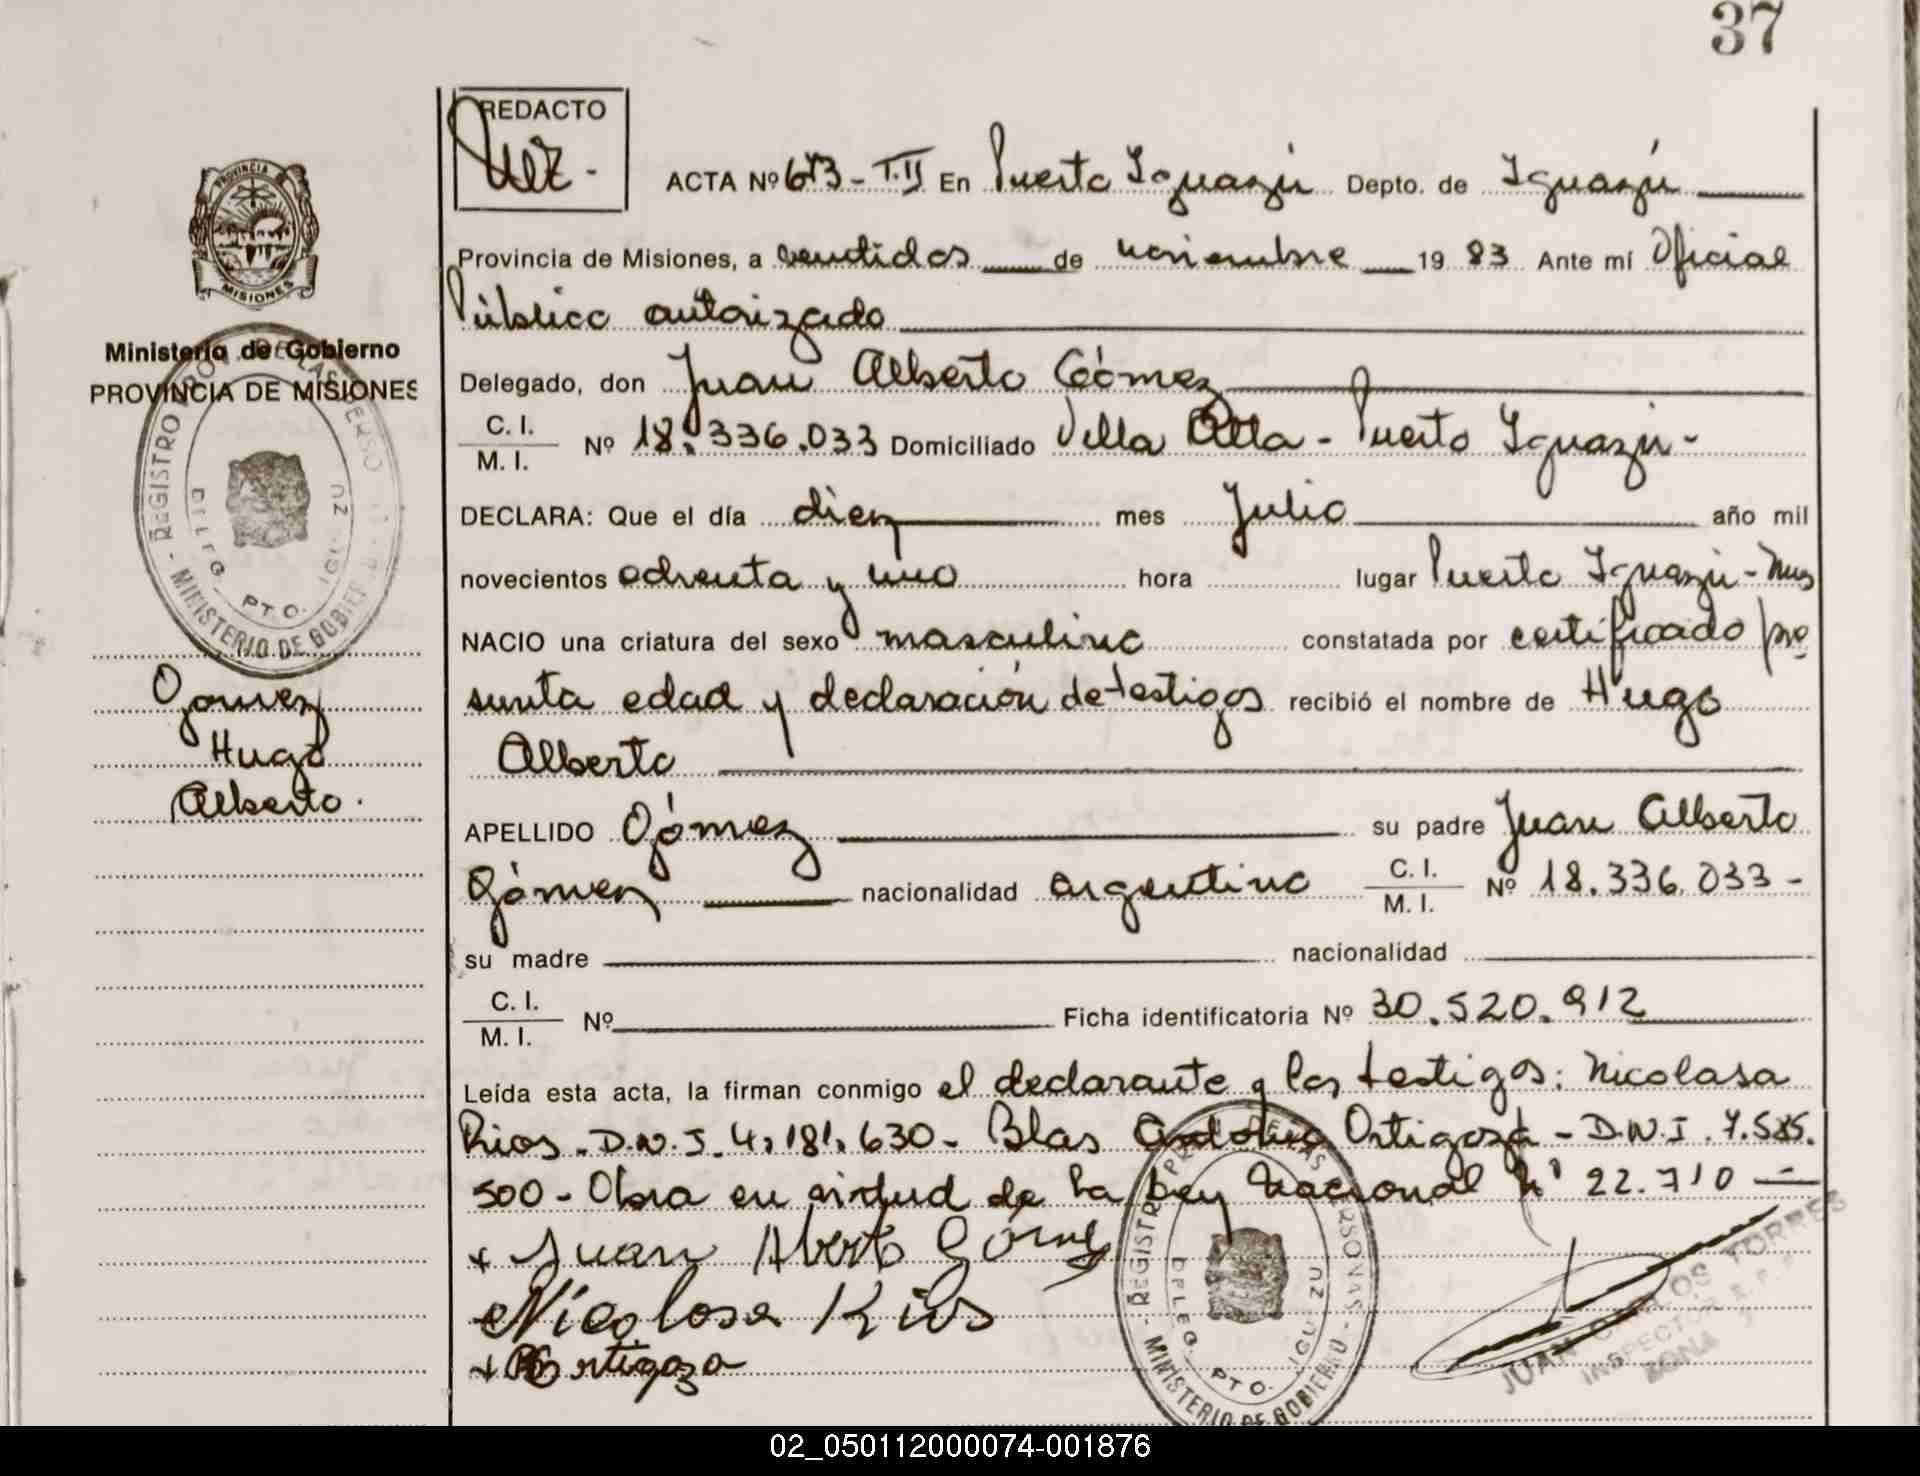 37
REDACTO
ACTA Nº 673 - T.II En Puerto Iguazú Depto. de Iguazú
PROVINCIA DE
MISIONES
Provincia de Misiones, a veintidos de noviembre 1983 Ante mí Oficial
Público autorizado
Ministerio de Gobierno
PROVINCIA DE MISIONES
Delegado, don Juan Alberto Gómez
C. I.
M. I. Nº 18.336.033 Domiciliado Villa Alta - Puerto Iguazú -
DECLARA: Que el día diez mes Julio año mil
novecientos ochenta y uno hora lugar Puerto Iguazú - Mnes
NACIO una criatura del sexo masculino constatada por certificado pre
sunta edad y declaración de testigos recibió el nombre de Hugo
Alberto
REGISTRO PROV. DE LAS PERSONAS
MINISTERIO DE GOBIERNO
DELEG. PTO. IGUAZU
Gomez
Hugo
Alberto.
APELLIDO Gómez su padre Juan Alberto
Gómez nacionalidad argentino C. I. M. I. Nº 18.336.033 -
su madre nacionalidad
C. I.
M. I. Nº Ficha identificatoria Nº 30.520.912
Leída esta acta, la firman conmigo el declarante y los testigos: Nicolasa
Rios - D.N.I. 4.181.630 - Blas Antonio Ortigoza - D.N.I. 7.585.
500 - Obra en virtud de la Ley Nacional Nº 22.710
+ Juan Alberto Gómez
Nicolasa Rios
+ B Ortigoza
REGISTRO PROV. DE LAS PERSONAS
MINISTERIO DE GOBIERNO
DELEG. PTO. IGUAZU
JUAN CARLOS TORRES
INSPECTOR R.P.P.
ZONA
02_050112000074-001876